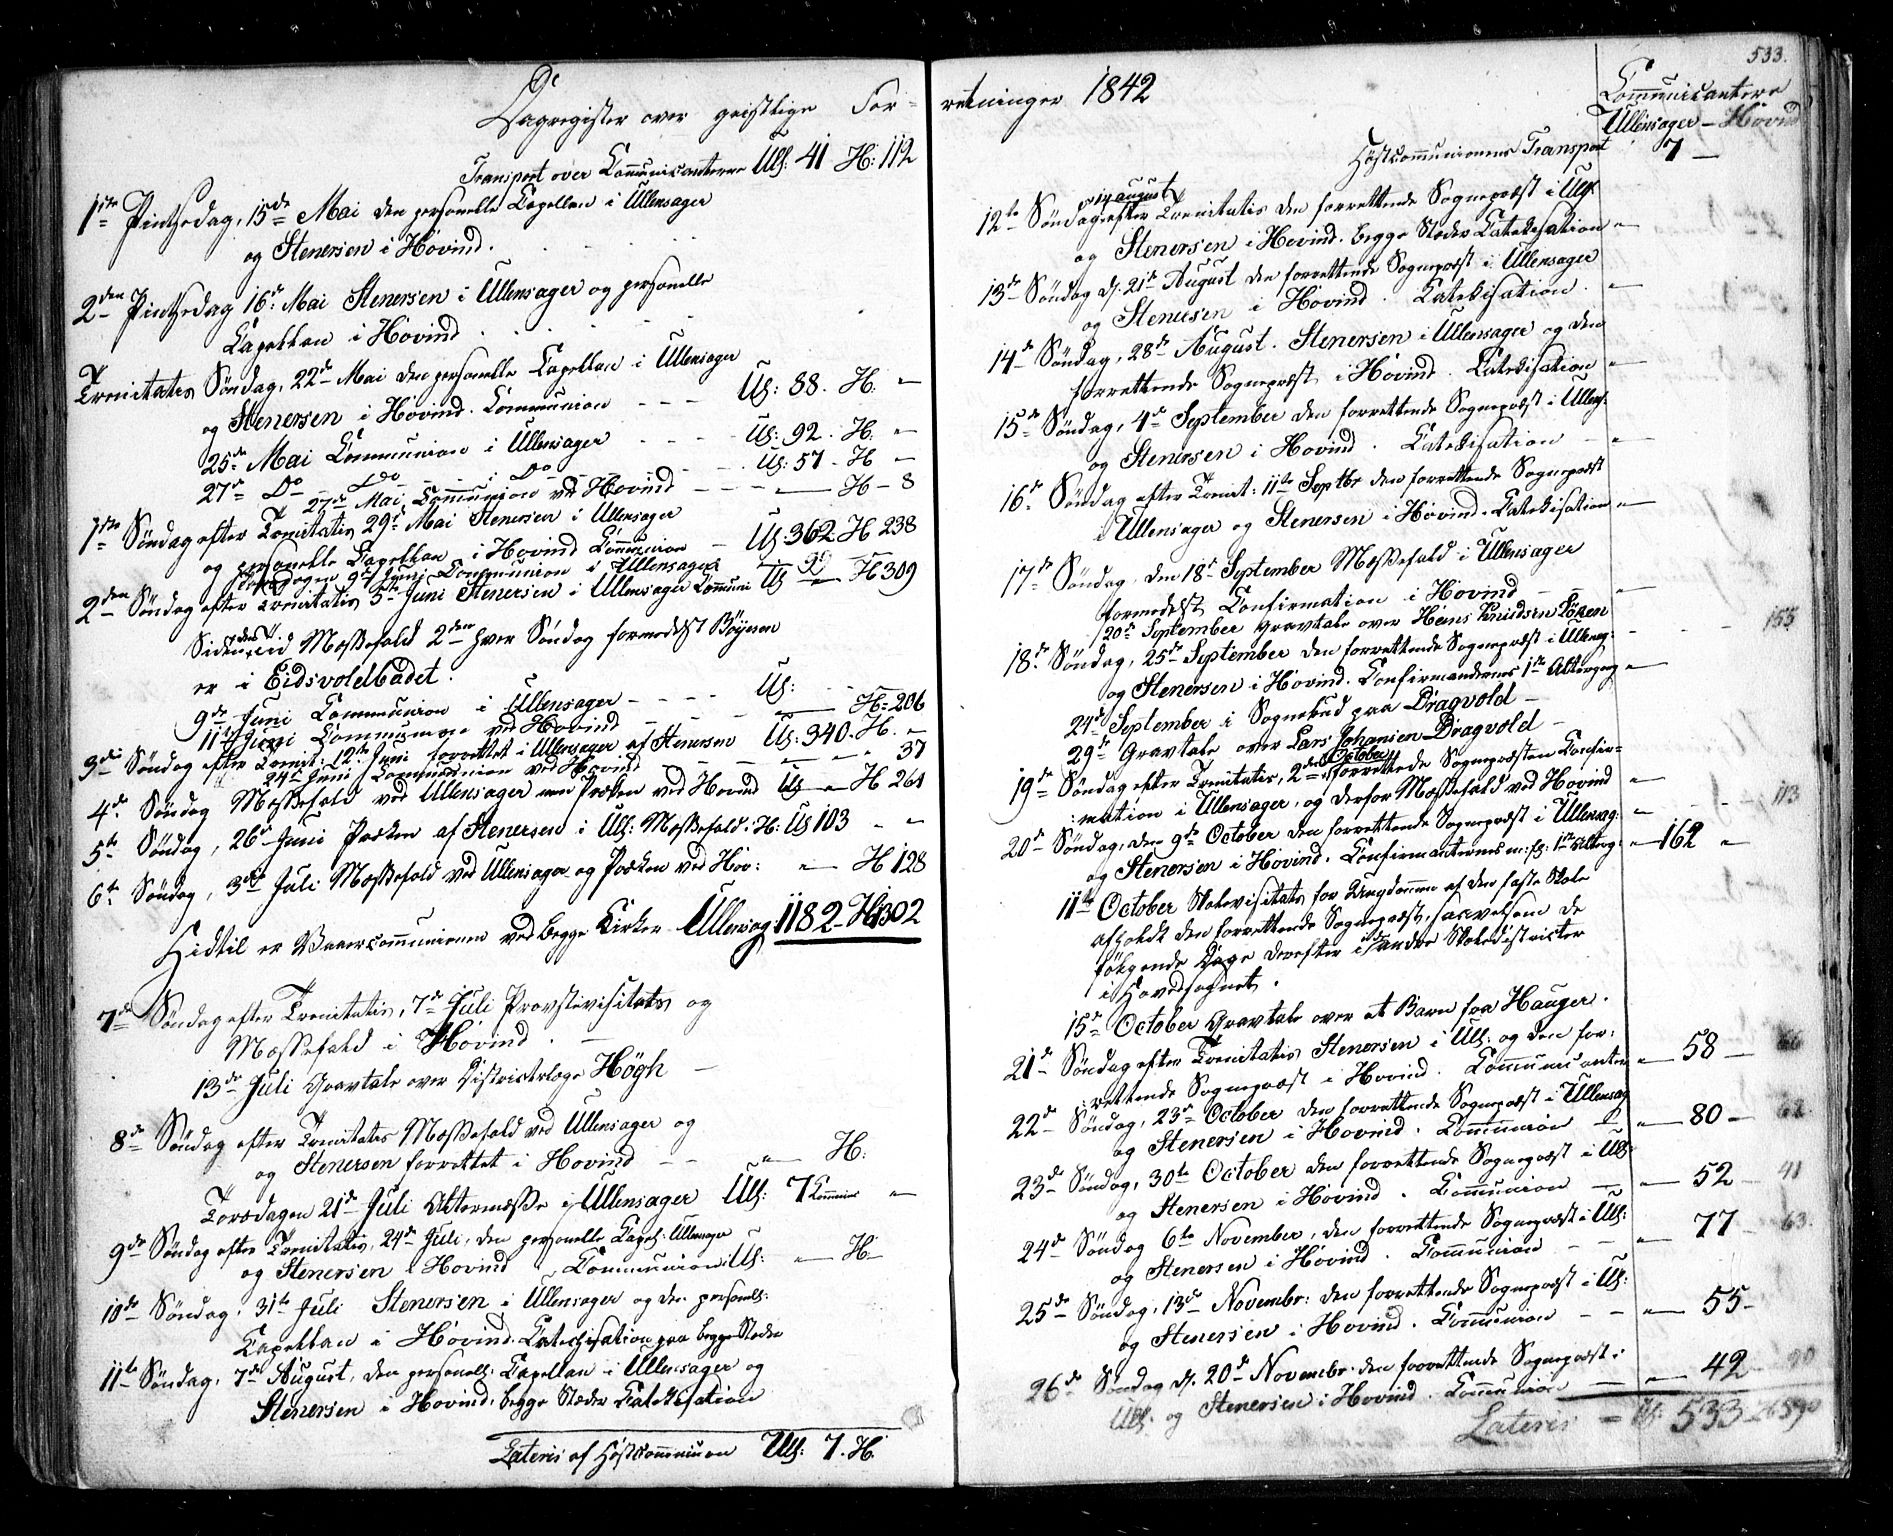 Dagregister over geistlige For-
Transport over Communicanterne Ull: 41 H: 112
1ste Pintsedag, 15de Mai den personelle Capellan i Ullensager
og Stenersen i Hovind.
2den Pintsedag 16de Mai Stenersen i Ullensager og personelle
Capellan i Hovind
Trenitatis Søndag, 22de Mai den personelle Capellan i Ullensager
og Stenersen i Hovind. Communion Ull: 88. H. "
25de Mai Communion i Ullensager Ull: 92. H. "
27de Do Do i Do Ull: 57 - H "
27de Mai Communion ved Hovind H - 8
1ste Søndag efter Trenitatis 29de Mai Stenersen i Ullensager
og personelle Capellan i Hovind Communion Ull: 362 H 238
Torsdagen 9de Juni Communion i Ullensager 99
2den Søndag efter Trenitatis 5te Juni Stenersen i Ullensager Communi Ull " H 309
Siden den Tid Messefald 2den hver Søndag formedelst Bøyesen
er i Eidsvoldbadet.
9de Juni Communion i Ullensager Ull:
11te Juni Communion ved Hovind H = 206
3die Søndag efter Trenit: 12te Juni forrettet i Ullensager af Stenersen Ull: 340. H. "
24de Juni Communion ved Hovind " 37
4de Søndag Messefald ved Ullensager men Præken ved Hovind Ull " H 261
5te Søndag, 26de Juni Præken af Stenersen i Ull: Messefald i H: Ull 103 - "
6te Søndag, 3die Juli Messefald ved Ullensager og Præken ved Hov: " H 128
Hidtil er Vaarcommunionen ved begge Kirker Ullensag: 1182 - H 1302
7de Søndag efter Trenitatis, 7de Juli Provstevisitats og
Messefald i Hovind.
13de Juli Gravtale over Districtslæge Høgh
8de Søndag efter Trenitatis Messefald ved Ullensager og
og Stenersen forrettet i Hovind " H:
Torsdagen 21de Juli Altermesse i Ullensager Ull: 7 Commun "
9de Søndag efter Trenitatis, 24de Juli, den personelle Capel: Ullensager
og Stenersen i Hovind, Communion Ull: " H:
10de Søndag, 31te Juli Stenersen i Ullensager og den personell:
Capellan i Hovind. Catechisation paa begge Steder
11te Søndag, 7de August, den personell: Capellan i Ullensager og
Stenersen i Hovind, begge Steder Catekisation
Lateris af Høstcommunion Ull: 7. H.
533.
retninger 1842
Communicantere
Ullensager - Hovind
Høstcommunionens Transport 7 -
14 august
12te Søndag efter Trenitatis den forrettende Sognepræst i Ull:
og Stenersen i Hovind. begge Steder Catekisation "
13de Søndag d. 21de August den forrettende Sognepræst i Ullensager
og Stenersen i Hovind. Catekisation. "
14de Søndag, 28de August. Stenersen i Ullensager og den
forrettende Sognepræst i Hovind. Catekisation "
15de Søndag, 4de September den forrettende Sognepræst i Ullens:
og Stenersen i Hovind. Catekisation - "
16de Søndag efter Trenit: 11te Septbr den forrettende Sognepræst
i Ullensager og Stenersen i Hovind. Catekisation "
17de Søndag, den 18de September Messefald i Ullensager
formedelst Confirmation i Hovind -
20de September Gravtale over Hans Knudsen
18de Søndag, 25de September den forrettende Sognepræst i Ullensag: 155
og Stenersen i Hovind. Confirmandernes 1ste Altergang "
24de September i Sognebud paa Dragvold -
29de Gravtale over Lars Johansen Dragvold -
October
19de Søndag efter Trenitatis, 2den forrettede Sognepræsten Confir=
:mation i Ullensager, og derfor Messefald ved Hovind "
20de Søndag, den 9de October den forrettende Sognepræst i Ullensag: " 113
og Stenersen i Hovind. Confirmanternes m: fl: 1ste Alterg: " 162 "
11te October Skolevisitats for Ungdommen af den faste Skole
afholdt den forrettende Sognepræst, saavelsom de
følgende Dage derefter i de andre Skoledistricter
i Hovedsognet.
15de October Gravtale over et Barn fra Hauger.
21de Søndag efter Trenitatis Stenersen i Ull: og den for:
:rettende Sognepræst i Hovind. Communicanter " 58 - 66
22de Søndag, 23de October den forrettende Sognepræst i Ullensag
og Stenersen i Hovind. Communion " 80 - 62
23de Søndag, 30te October den forrettende Sognepræst i Ull:
og Stenersen i Hovind. Communion " 52 - 41
24de Søndag 6te November, den forrettende Sognepræst i Ull:
og Stenersen i Hovind. Communion " 77 63
25de Søndag, 13de Novembr: den forrettende Sognepræst i Ull:
og Stenersen i Hovind. Communion " 55 -
26de Søndag d. 20de Novembr. den forrettende Sognepræst i
Ull. og Stenersen i Hovind. Communion " 42
Lateris - Ul: 533